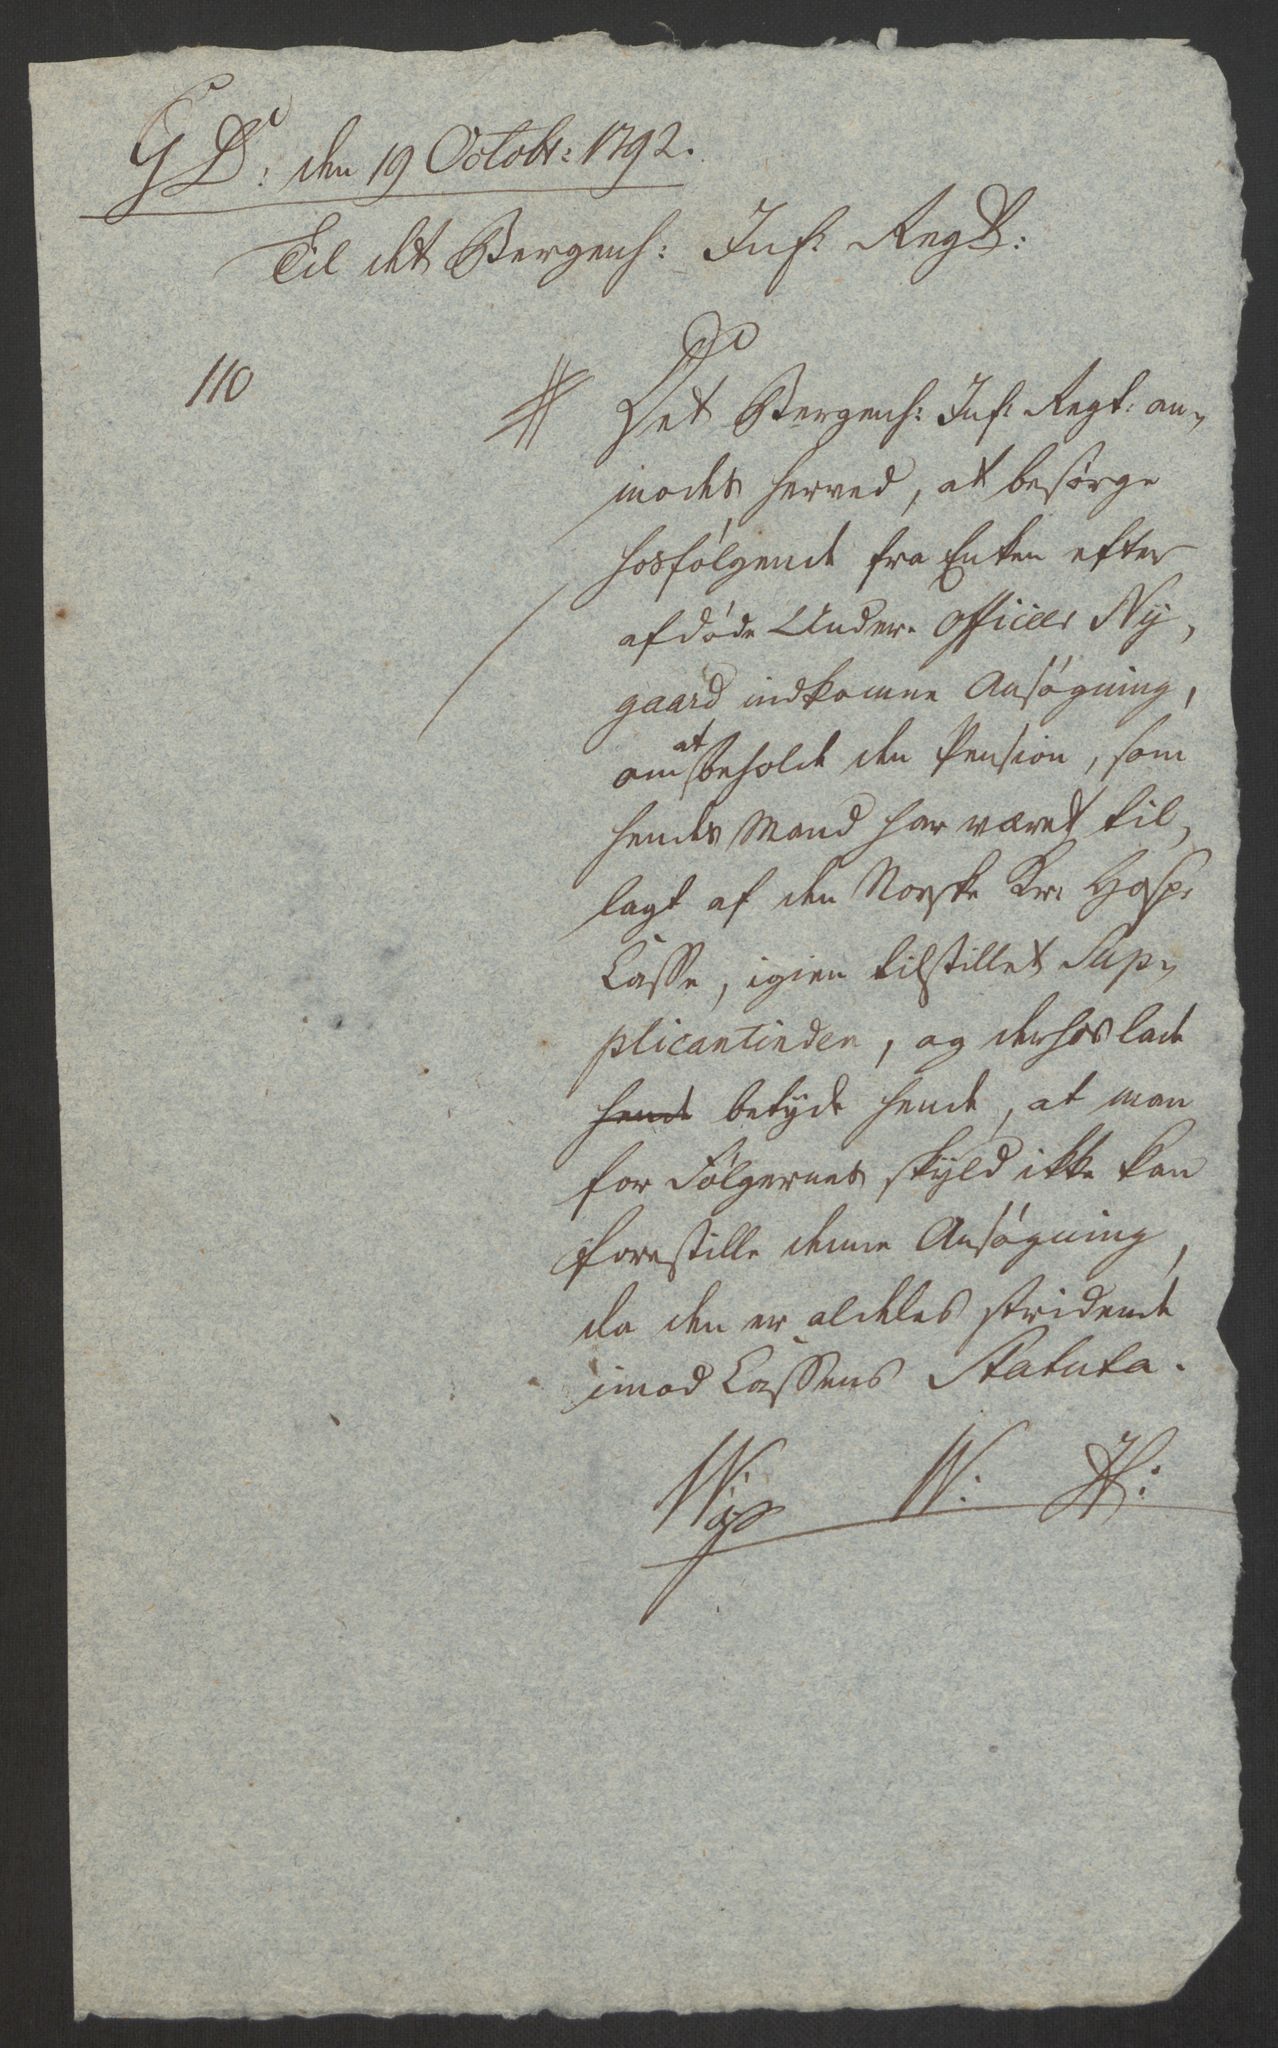 G D: den 19 Octobr: 1792.
Til det Bergenh: Inf: Regt:
110
Det Bergenh: Inf: Regt: an„
modes herved, at besørge
hosfølgende fra Enken efter
afdøde Under-Officeer Ny„
gaard indkomne Ansøgning,
om at beholde den Pension, som
hendes Mand har været til„
lagt af den Norske Kr: Hosp:
Casse, igien tilstillet Sup„
plicantinden, og derhos lade
hende betyde hende, at man
for Følgernes skyld ikke kan
forestille denne Ansøgning,
da den er aldeles stridende
imod Cassens Statuta.
W: H: